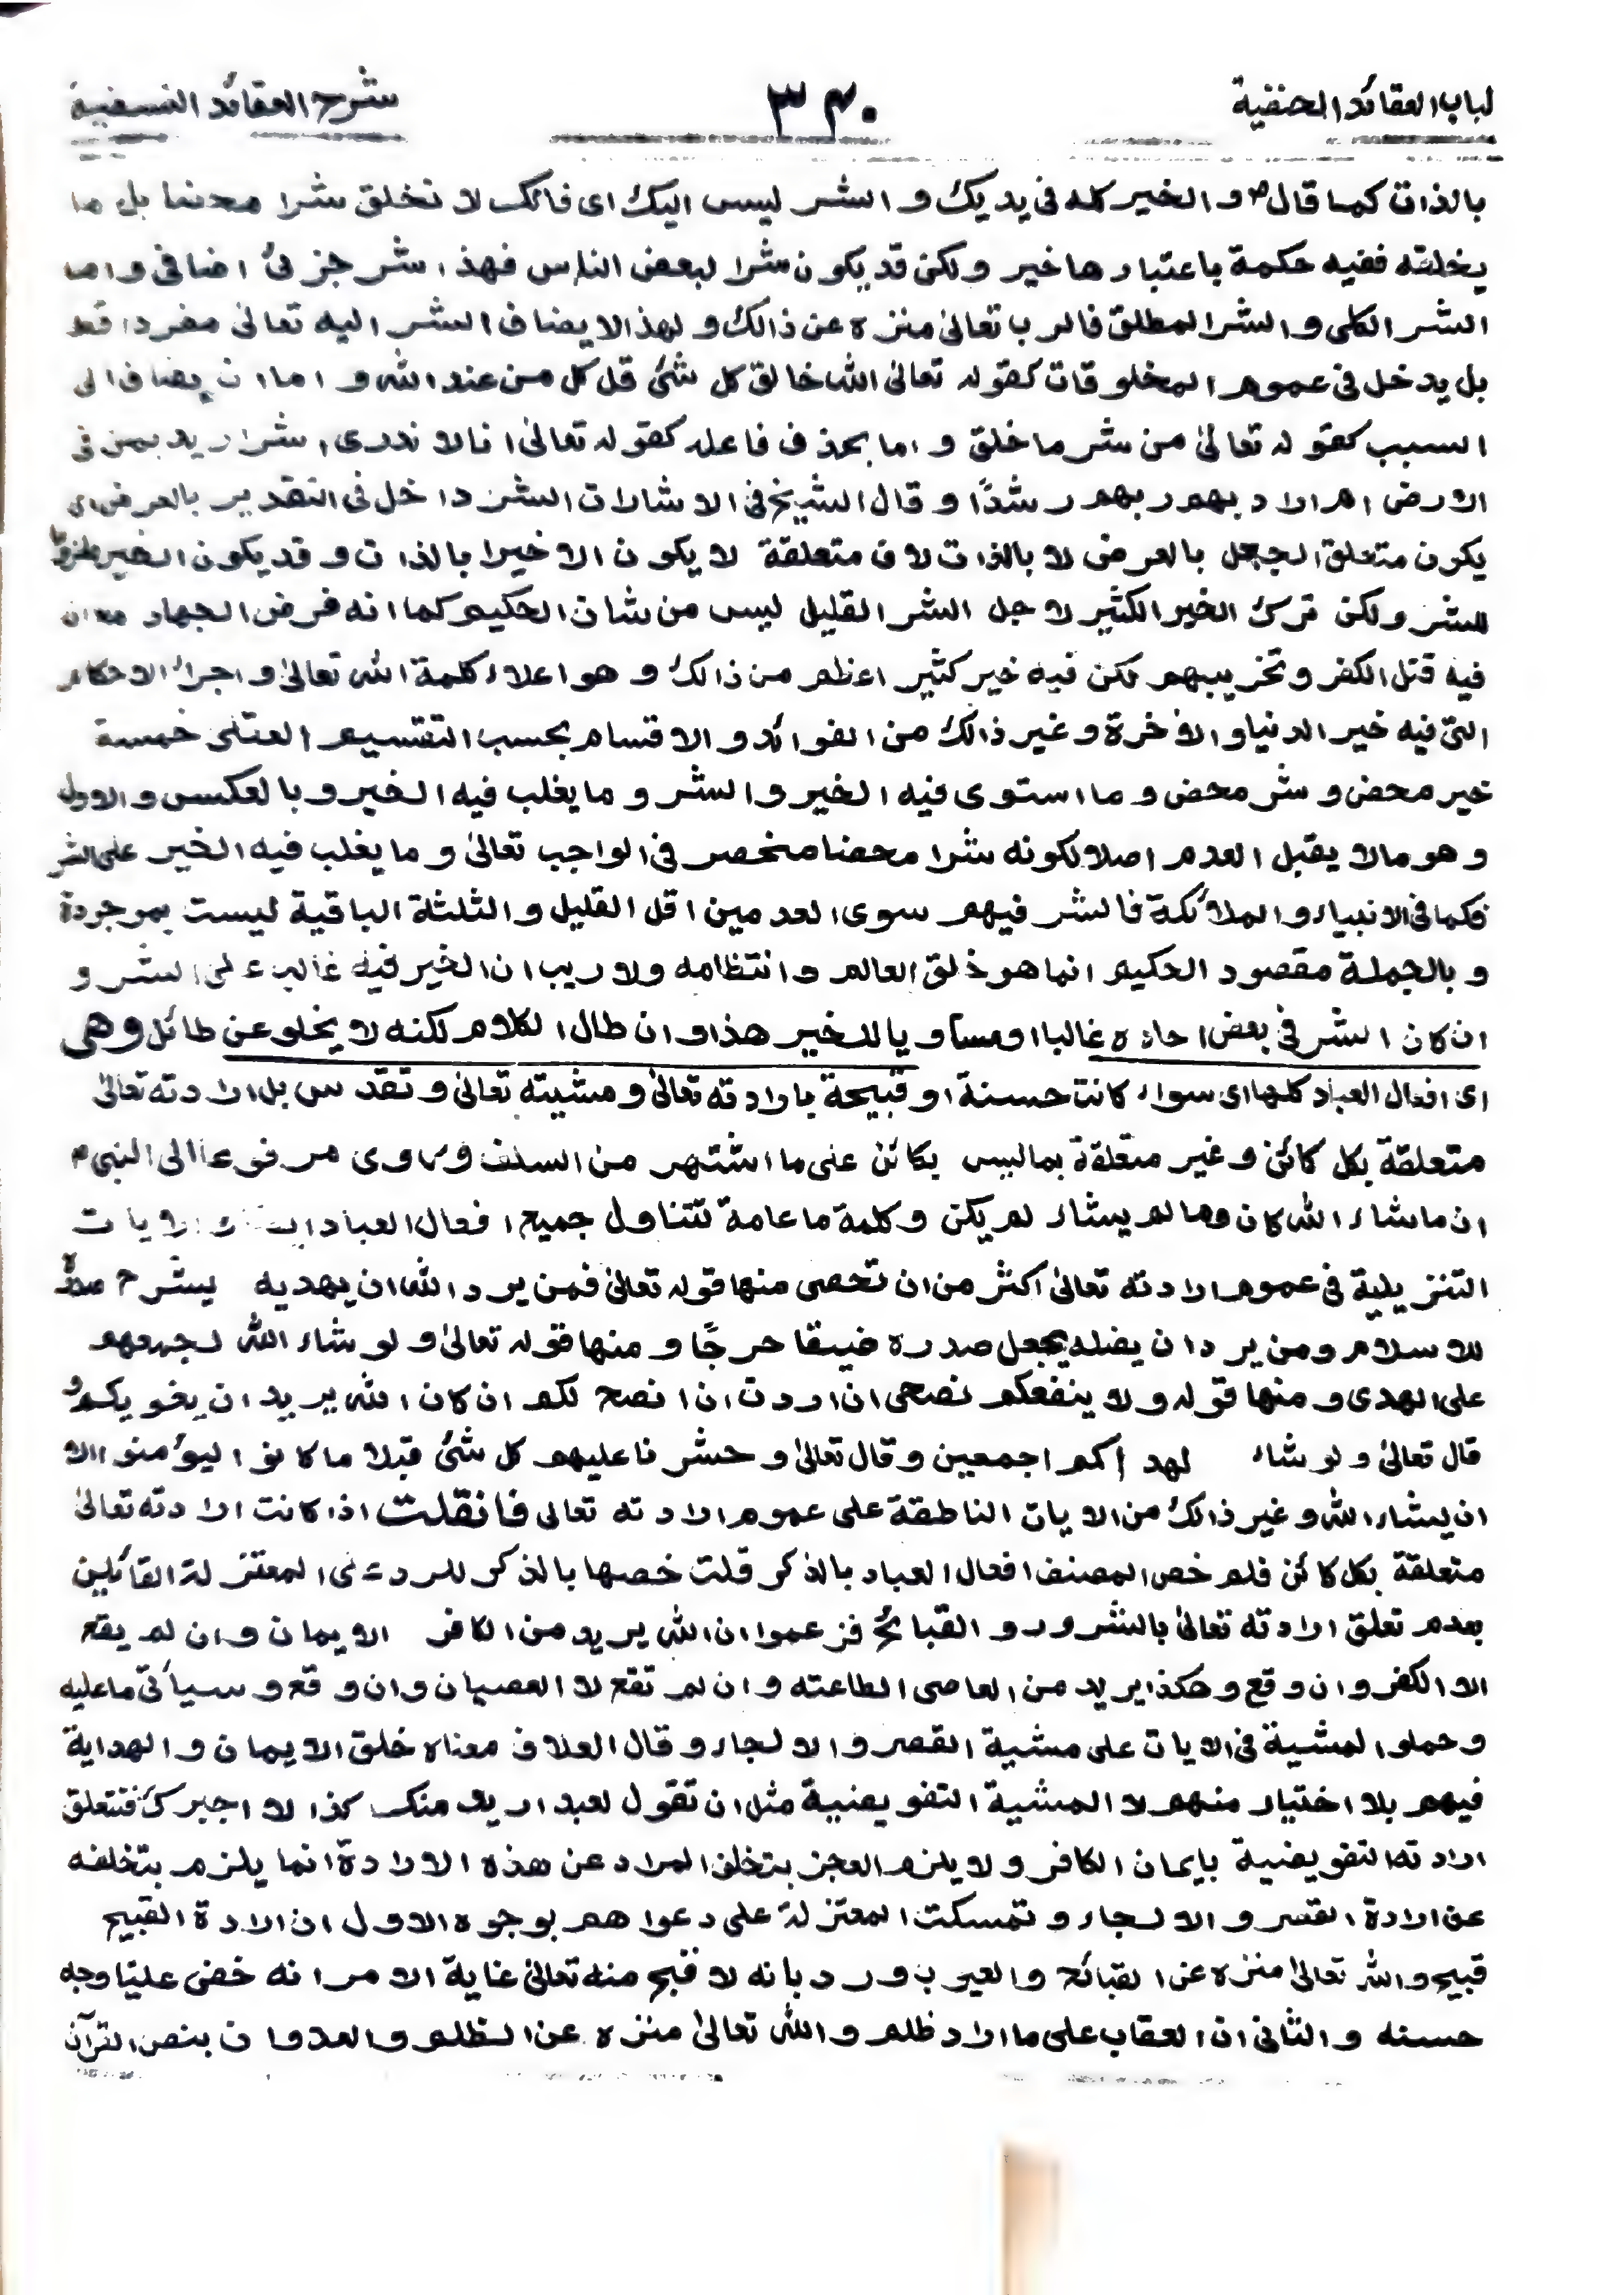 لباب العقائد الحنفية
٣٤٠
شرح العقائد النسفية
بالذات كما قال ص والخير كله فى يديك و الشر ليس اليك اى فانك لا تخلق شرا محضا بل ما
يخلقه ففيه حكمة باعتبارها خير ولكن قد يكون شرا لبعض الناس فهذا شر جزئى اضافى واما
الشر الكلى و الشر المطلق فالرب تعالىٰ منزه عن ذالك و لهذا لا يضاف الشر اليه تعالىٰ مفردا قط
بل يدخل فى عموم المخلوقات كقوله تعالىٰ الله خالق كل شئ قل كل من عند الله و اما ان يضاف الى
السبب كقوله تعالىٰ من شر ما خلق و اما بحذف فاعله كقوله تعالىٰ انا لا ندرى اشر اريد بمن فى
الارض ام اراد بهم ربهم رشدًا و قال الشيخ فى الاشارات الشر داخل فى التقدير بالعرض اى
يكون متعلق الجعل بالعرض لا بالذات لان متعلقة لا يكون الا خيرا بالذات و قد يكون الخير ملزومًا
للشر ولكن ترك الخير الكثير لاجل الشر القليل ليس من شان الحكيم كما انه فرض الجهاد مع ان
فيه قتل الكفر و تخريبهم لكن فيه خير كثير اعظم من ذالك و هو اعلاء كلمة الله تعالىٰ و اجراء الاحكام
التى فيه خير الدنيا و الآخرة و غير ذالك من الفوائد و الاقسام بحسب التقسيم العقلى خمسة
خير محض و شر محض و ما استوى فيه الخير و الشر و ما يغلب فيه الخير و بالعكس و الاول
و هو مالا يقبل العدم اصلا لكونه شرا محضا منحصر فى الواجب تعالىٰ و ما يغلب فيه الخير على الشر
فكما فى الانبياء و الملائكة فالشر فيهم سوى العدمين اقل القليل و الثلثة الباقية ليست بموجودة
و بالجملة مقصود الحكيم انما هو خلق العالم و انتظامه ولا ريب ان الخير فيه غالب على الشر و
ان كان الشر فى بعض احاده غالبا او مساويا للخير هذا و ان طال الكلام لكنه لا يخلو عن طائل وهى
اى افعال العباد كلها اى سواء كانت حسنة او قبيحة بارادته تعالىٰ و مشيته تعالىٰ و تقدس بل ارادته تعالىٰ
متعلقة بكل كائن و غير متعلقة بما ليس بكائن على ما اشتهر من السلف و روى مرفوعا الى النبى م
ان ما شاء الله كان وما لم يشاء لم يكن و كلمة ما عامة تتناول جميع افعال العباد الايات
التنزيلية فى عموم ارادته تعالىٰ اكثر من ان تحصى منها قوله تعالىٰ فمن يرد الله ان يهديه يشرح صدره
للاسلام ومن يرد ان يضله يجعل صدره ضيقا حرجًا و منها قوله تعالىٰ و لو شاء الله لجمعهم
على الهدى و منها قوله ولا ينفعكم نصحى ان اردت ان انصح لكم ان كان الله يريد ان يغويكم و
قال تعالىٰ و لو شاء لهداكم اجمعين و قال تعالىٰ و حشرنا عليهم كل شئ قبلا ما كانوا ليؤمنوا الا
ان يشاء الله و غير ذالك من الايات الناطقة على عموم ارادته تعالى فانقلت اذا كانت ارادته تعالىٰ
متعلقة بكل كائن فلم خص المصنف افعال العباد بالذكر قلت خصها بالذكر للرد على المعتزلة القائلين
بعدم تعلق ارادته تعالىٰ بالشرور و القبائح فزعموا ان الله يريد من الكافر الايمان و ان لم يقع
لا الكفر و ان وقع و هكذا يريد من العاصى الطاعته و ان لم تقع لا العصيان و ان وقع و سيأتى ما عليه
و حملوا المشية فى الايات على مشية القصر و الالجاء و قال العلاف معناه خلق الايمان و الهداية
فيهم بلا اختيار منهم لا المشية التفويضية مثل ان تقول لعبد اريد منك كذا لا اجبرك فتتعلق
ارادته التفويضية بايمان الكافر و لا يلزم العجز بتخلف المراد عن هذه الارادة انما يلزم بتخلفه
عن ارادة القسر و الالجاء و تمسكت المعتزلة على دعواهم بوجوه الاول ان ارادة القبيح
قبيح و الله تعالىٰ منزه عن القبائح و العيوب ورد بانه لا قبح منه تعالىٰ غاية الامر انه خفى علينا وجه
حسنه و الثانى ان العقاب على ما اراد ظلم و الله تعالىٰ منزه عن الظلم و العدوان بنص القرآن